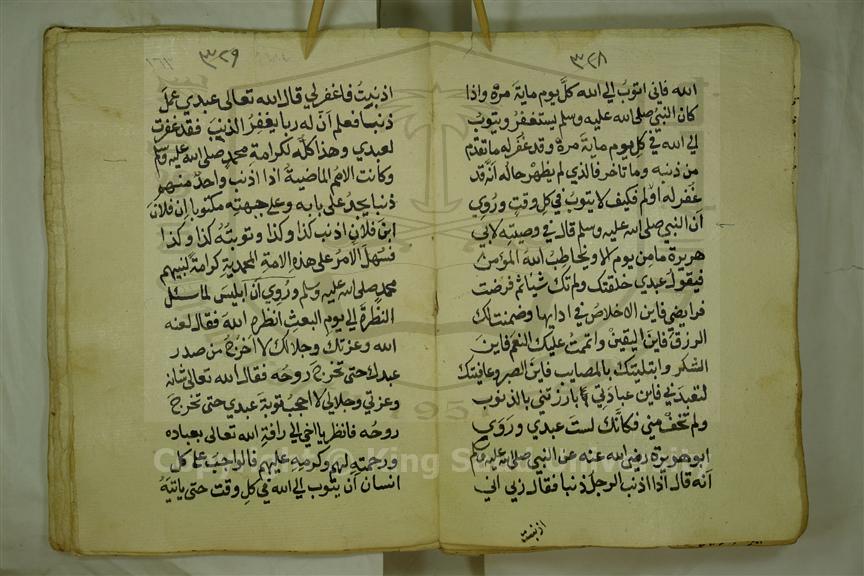 ٣٢٨
الله فاني اتوب الي الله كلَّ يوم ماية مرة واذا
كان النبي صلى الله عليه وسلم يستغفر ويتوب
الي الله في كل يوم مايَة مرة وقد غفر له ما تقدم
من ذنبه وما تاخر فالذي لم يظهر حاله انّه قد
غفر له اولم فكيف لا يتوب في كل وقتٍ وروي
ان النبي صلى الله عليه وسلم قال في وصيته لابي
هريرة ما من يوم الا ويخاطب الله المؤمن
فيقول عبدي خلقتك ولم تك شيأ ثم فرضت
فرايضي فاين الاخلاص في ادايها وضمنت لك
الرزق فاين اليقين واتممت عليك النعم فاين
الشكر وابتليتك بالمصايب فاين الصبر وعافيتك
لتعبدني فاين عبادتي بارزتني بالذنوب
ولم تخف مني فكانك لست عبدي وروي
ابو هريرة رضي الله عنه عن النبي صلى الله عليه وسلم
انه قال اذا اذنب الرجل ذنبا فقال ربي اني
اذنبت
٣٢٩
اذنبت فاغفر لي قال الله تعالى عبدي عمل
ذنبا فعلم ان له ربا يغفر الذنب فقد غفرت
لعبدي وهذا كله لكرامة محمد صلى الله عليه وسلم
وكانت الامم الماضية اذا اذنب واحد منهم
ذنبا يجد على بابه وعلى جبهته مكتوبا ان فلان
ابن فلان اذنب كذا وكذا وتوبته كذا وكذا
فسهل الامر على هذه الامة المحمدية كرامة لنبيهم
محمد صلى الله عليه وسلم وروي ان ابليس لما سئل
النظرة الي يوم البعث انظره الله فقال لعنه
الله وعزتك وجلالك لا اخرج من صدر
عبدك حتى تخرج روحه فقال الله تعالى شانه
وعزتي وجلالي لا احجب توبة عبدي حتى تخرج
روحه فانظر يا اخي الي رافة الله تعالى بعباده
ورحمته لهم وكرمه عليهم فالواجب على كل
انسان ان يتوب الي الله في كل وقت حتى ياتيه
Copyright © King Saud University
1957